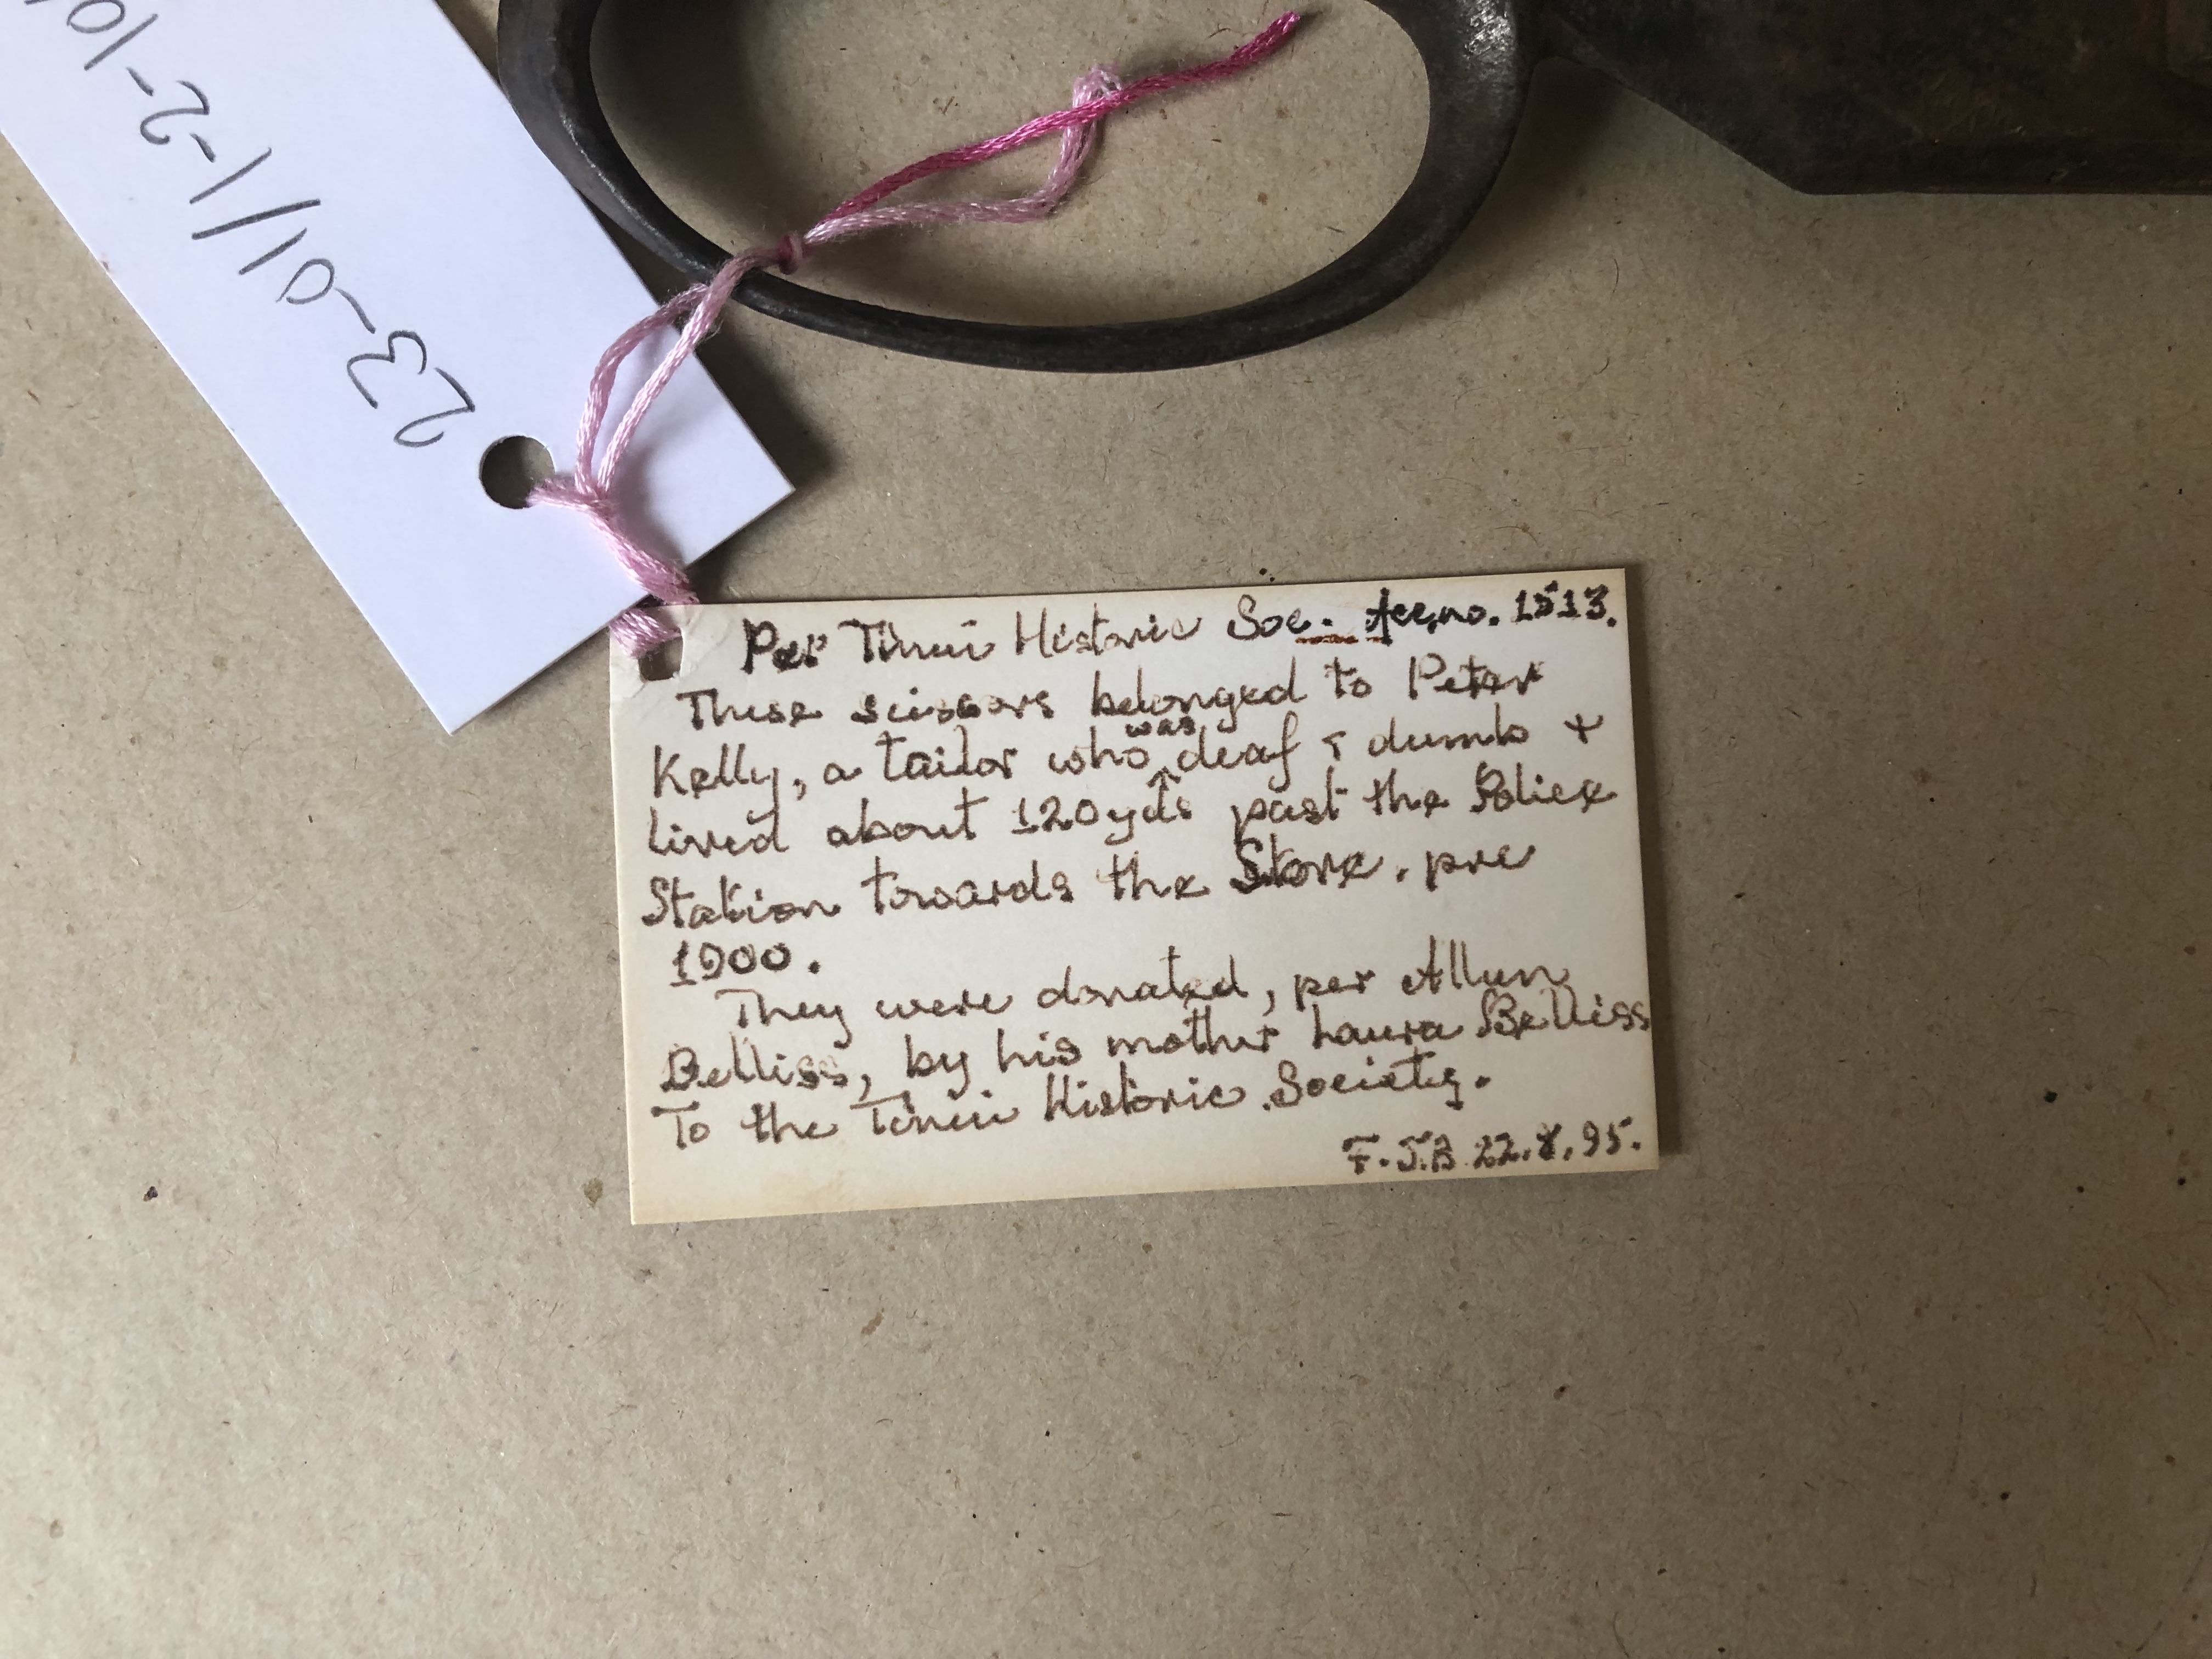 23-01/1-2-10
Per Tinui Historic Soc. Acc. no. 1513.
These scissors belonged to Peter
was
Kelly, a tailor who ^ deaf & dumb +
lived about 120yds past the Police
Station towards the Store. pre
1900.
They were donated, per Allum
Belliss, by his mother Laura Belliss
To the Tinui Historic Society.
T.S.B. 22.8.95.